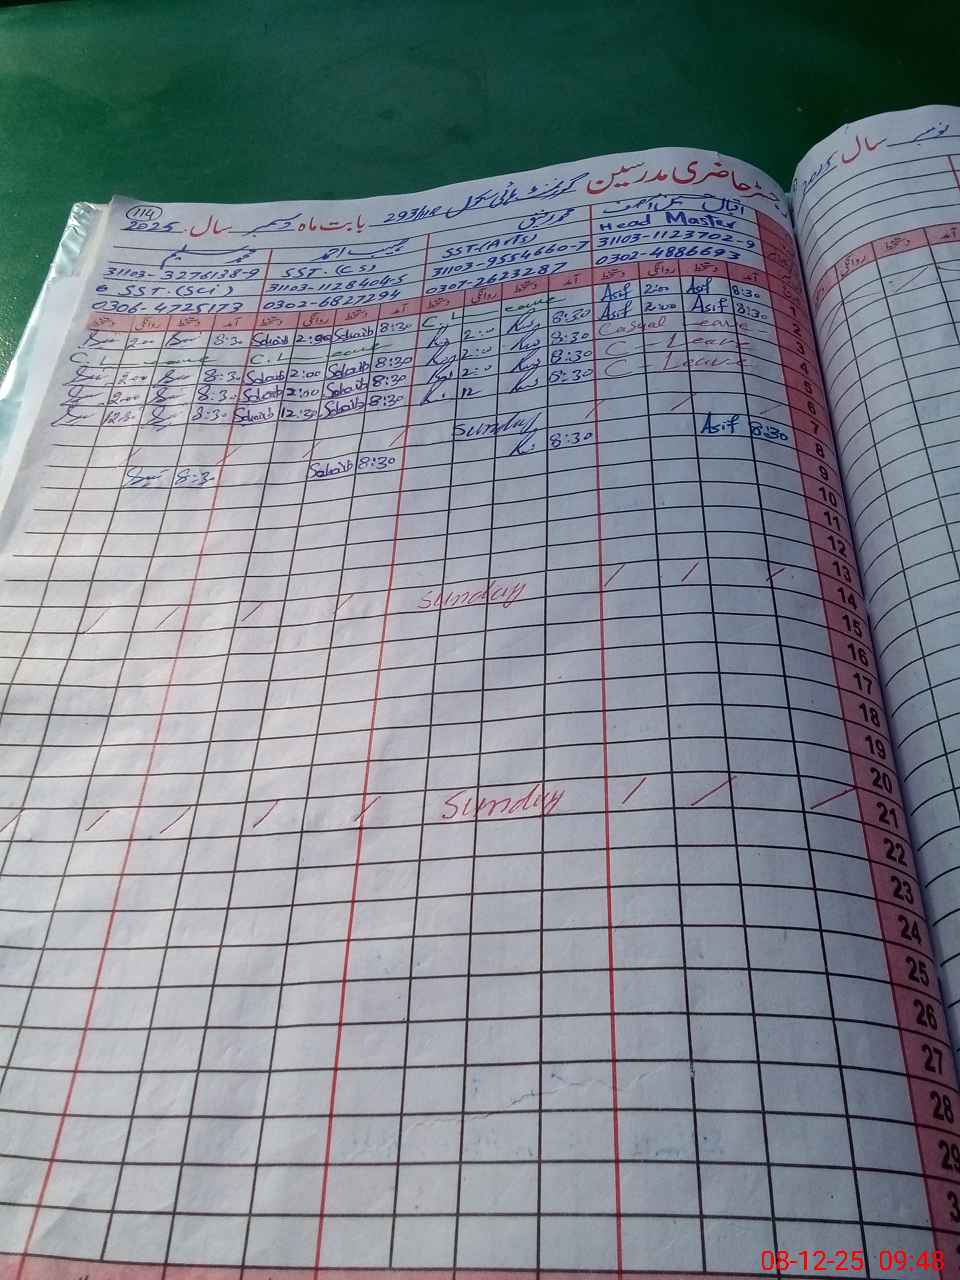 114
رجسٹر حاضری مدرسین گورنمنٹ ہائی سکول 293/HR بابت ماہ دسمبر سال 2025
Head Master
SST.(Arts)
SST.(CS)
e SST.(Sci)
31103-1123702-9
31103-9554660-7
31103-1128404-5
31103-3276138-9
0302-4886693
0307-2623287
0302-6827294
0306-4725173
آمد دستخط روانگی دستخط آمد دستخط روانگی دستخط آمد دستخط روانگی دستخط
1 8:30 Asif 2:00 Asif C.L eave 8:30 Sohaib 2:00 Sohaib 8:30 2:00
2 8:30 Asif 2:00 Asif 8:30 2:00 C.L eave C.L eave
3 Casual Leave 8:30 2:00 8:30 Sohaib 2:00 Sohaib 8:30 2:00
4 C-Leave 8:30 2:00 8:30 Sohaib 2:00 Sohaib 8:30 2:00
5 C-Leave 8:30 12 8:30 Sohaib 12:30 Sohaib 8:30 12:30
6
7 Sunday
8 8:30 Asif 8:30 8:30 Sohaib 8:30
9
10
11
12
13
14 Sunday
15
16
17
18
19
20
21 Sunday
22
23
24
25
26
27
28
29
3
سال 2025
آمد دستخط روانگی
08-12-25 09:48